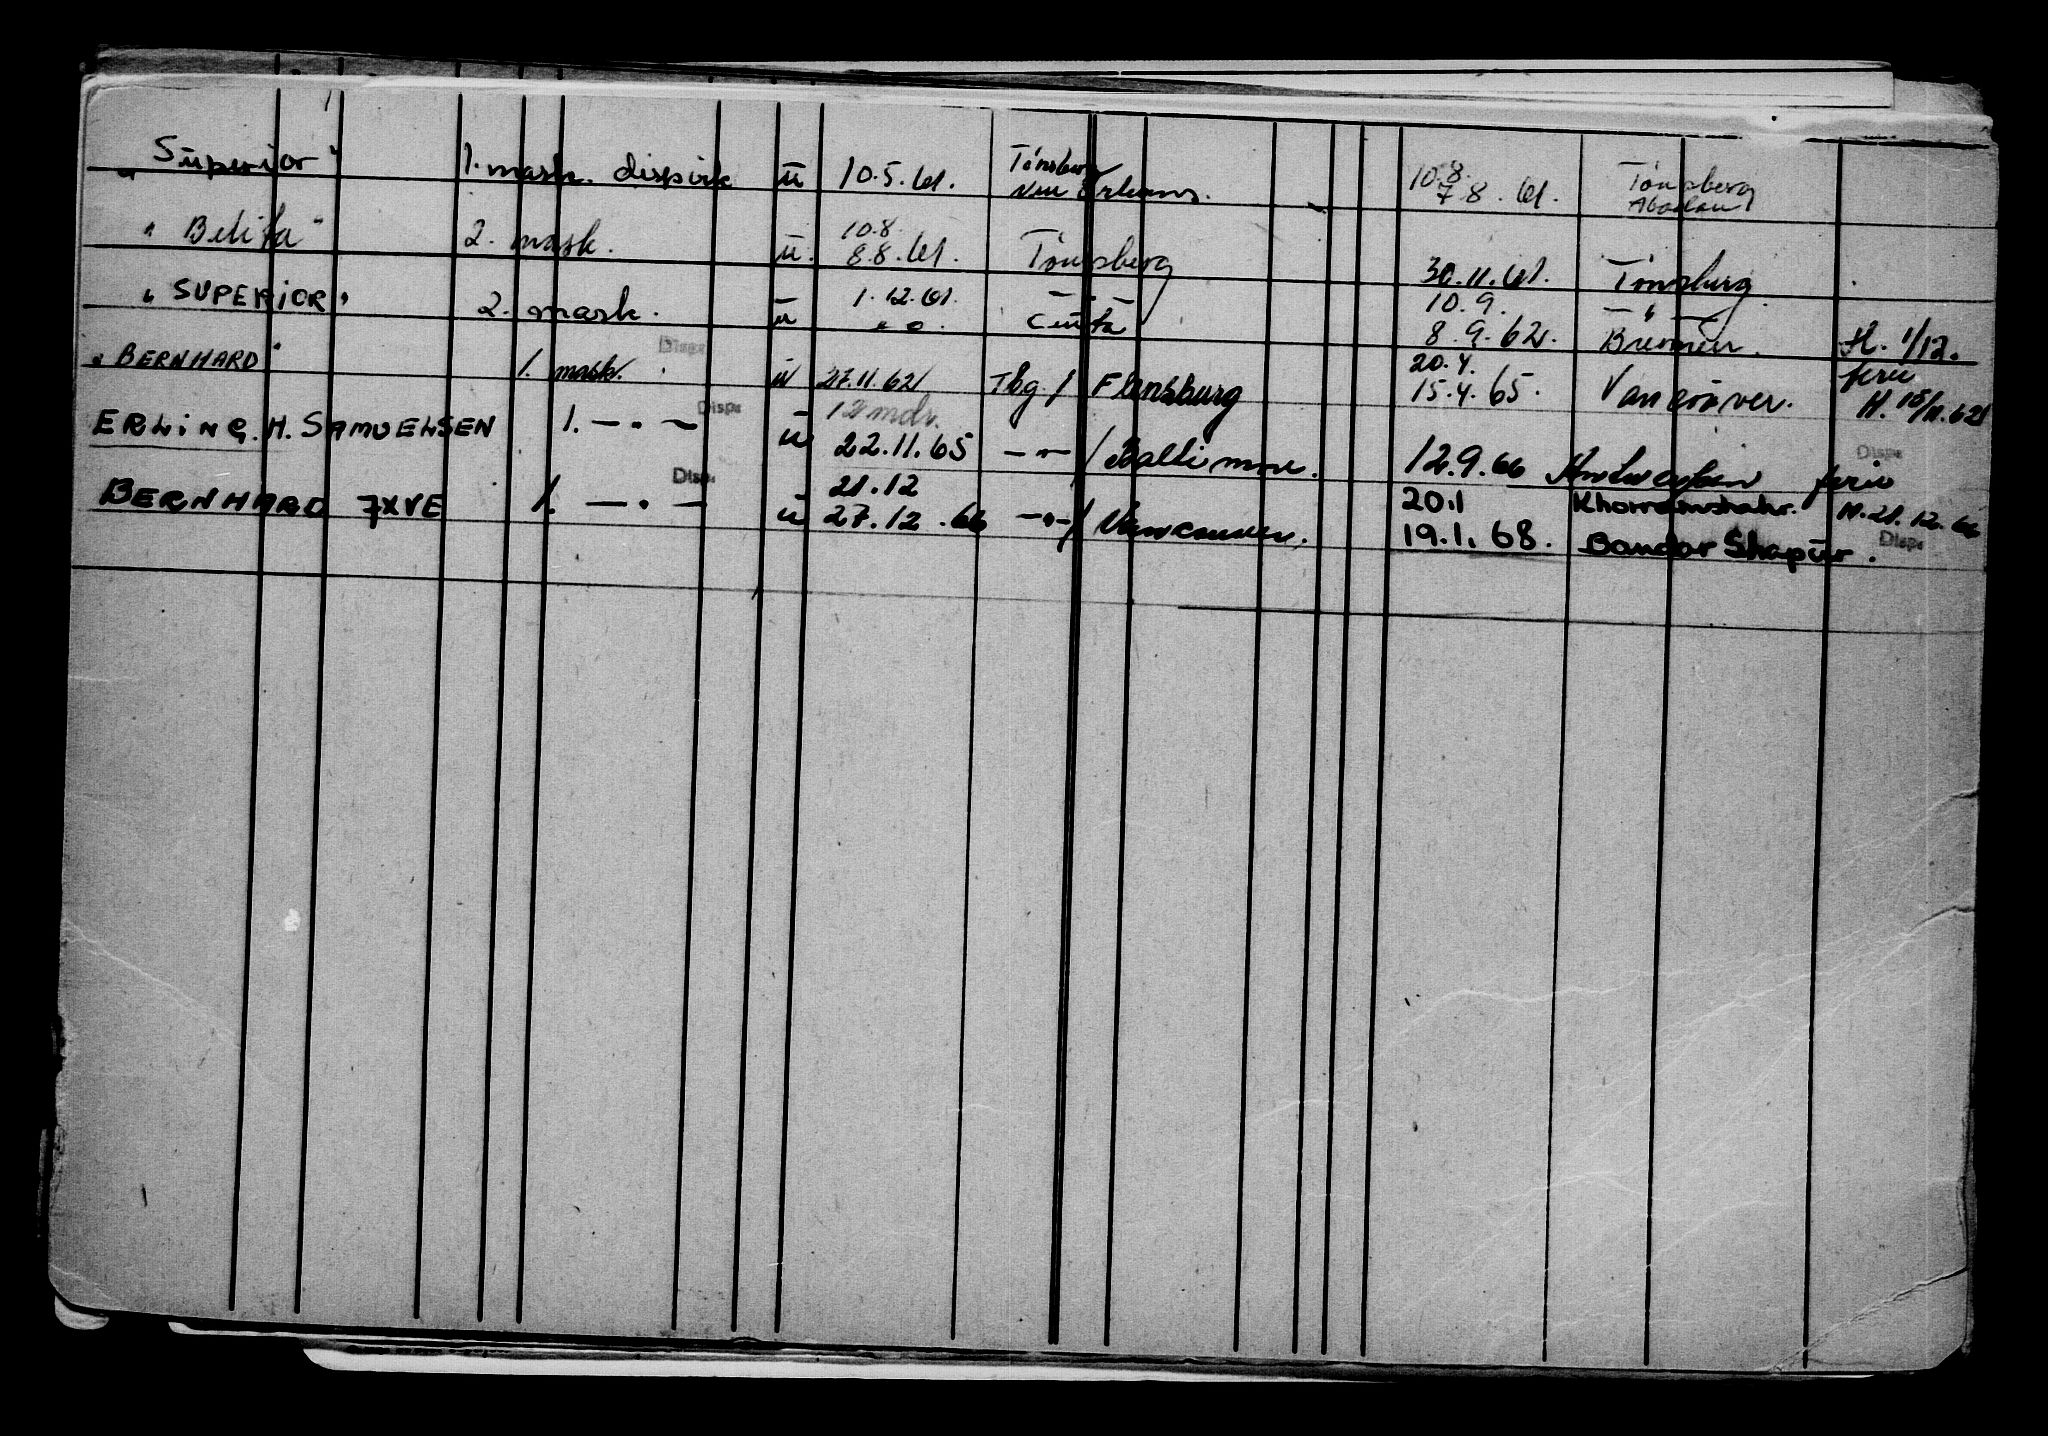 „ Superior " 1. mask. dispvis u 10.5.61. Tönsberg New Orleans. 10.8. 7.8.61. Tönsberg Abadan
„ Belifa " 2. mask. u. 10.8. 8.8.61. Tönsberg 30.11.61. Tönsberg.
„ SUPERIOR " 2. mask. u 1.12.61. — " — Ceuta 10.9. 8.9.62. — " — Bremen. H. 1/12.
„ BERNHARD " 1. mask. Disps u 27.11.62 Tbg / Flensburg 20.4. 15.4.65. Vancouver. ferie H. 15/11.62
ERLING. H. SAMUELSEN 1. — " — Disps u 12 mdr. 22.11.65 — " — / Baltimore. 12.9.66 Antwerpen ferie Disps
BERNHARD 7XVE 1. — " — Disps. u 21.12 27.12.66 — " — / Vancouver. 20.1 19.1.68. Khorramshahr. Bandar Shapür. H. 21.12.66 Disps